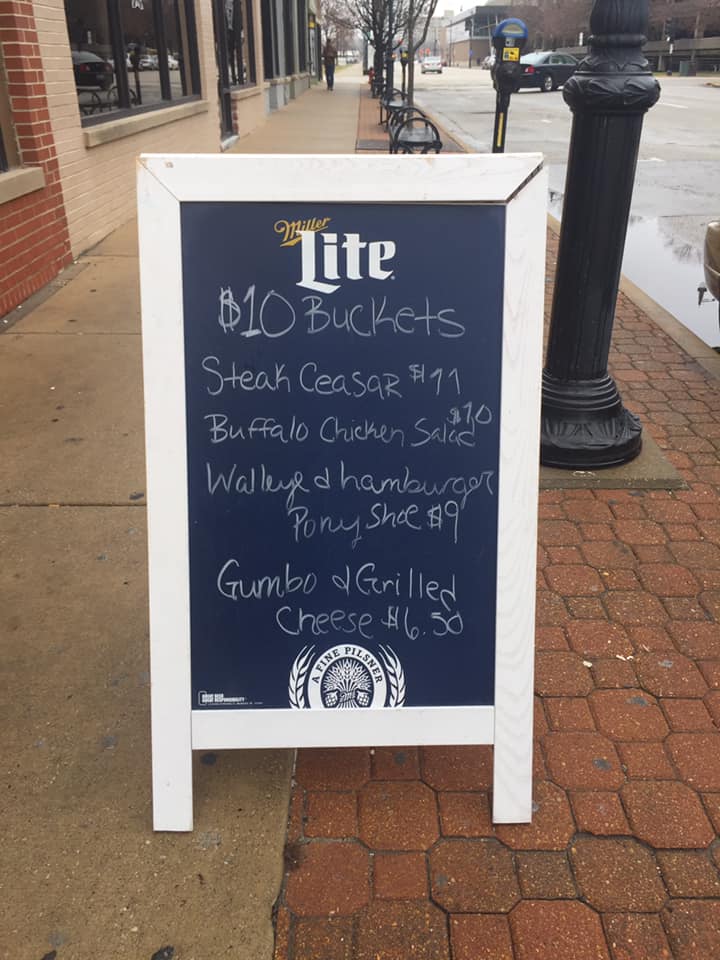 Miller
Lite
$10 Buckets
Steak Ceasar $11
Buffalo Chicken Salad $10
Walleye & hamburger
Pony Shoe $9
Gumbo & Grilled
Cheese $6.50
A FINE PILSNER
GREAT BEER
GREAT RESPONSIBILITY